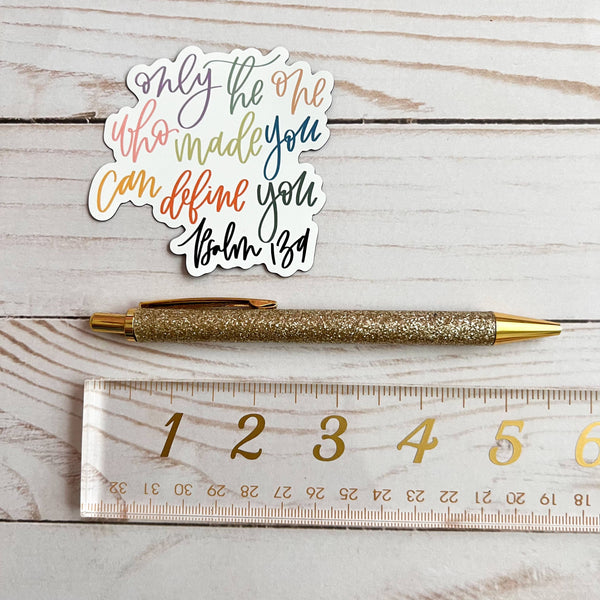 only the one
who made you
can define you
Psalm 139
1 2 3 4 5 6
32 31 30 29 28 27 26 25 24 23 22 21 20 19 18